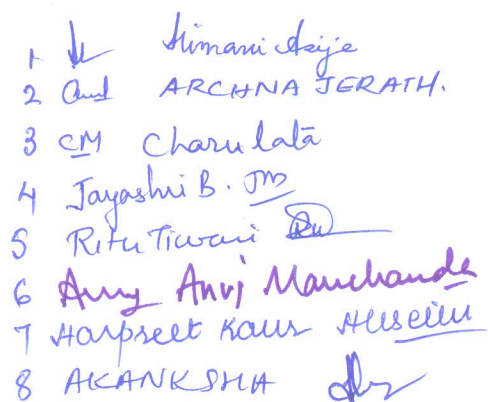 1 Himani
2 ARCHNA JERATH.
3 CM Charulata
4 Jayashri B. JMB
5 Ritu Tiwari
6 Anuj Manchanda
7 Harpreet Kaur
8 AKANKSHA